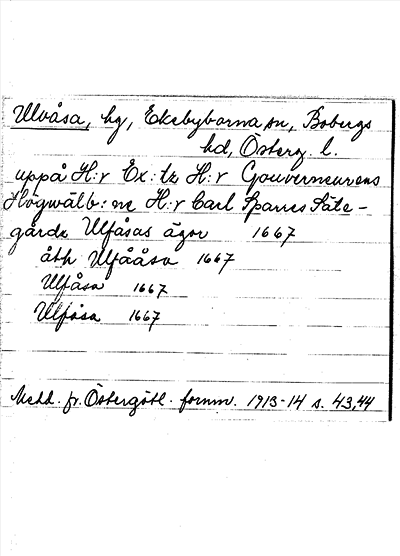 Ulvåsa, hg, Ekebyborna sn, Bobergs
hd, Österg. l.
uppå H:r Ex:tz H:r Gouverneurens
Högwälb:ne H:r Carl Sparres Säte-
gårds Ulfåsas ägor 1667
åth Ulfååsa 1667
Ulfåsa 1667
Ulfåsa 1667
Medd. fr. Östergötl. fornm. 1913-14 s. 43,44